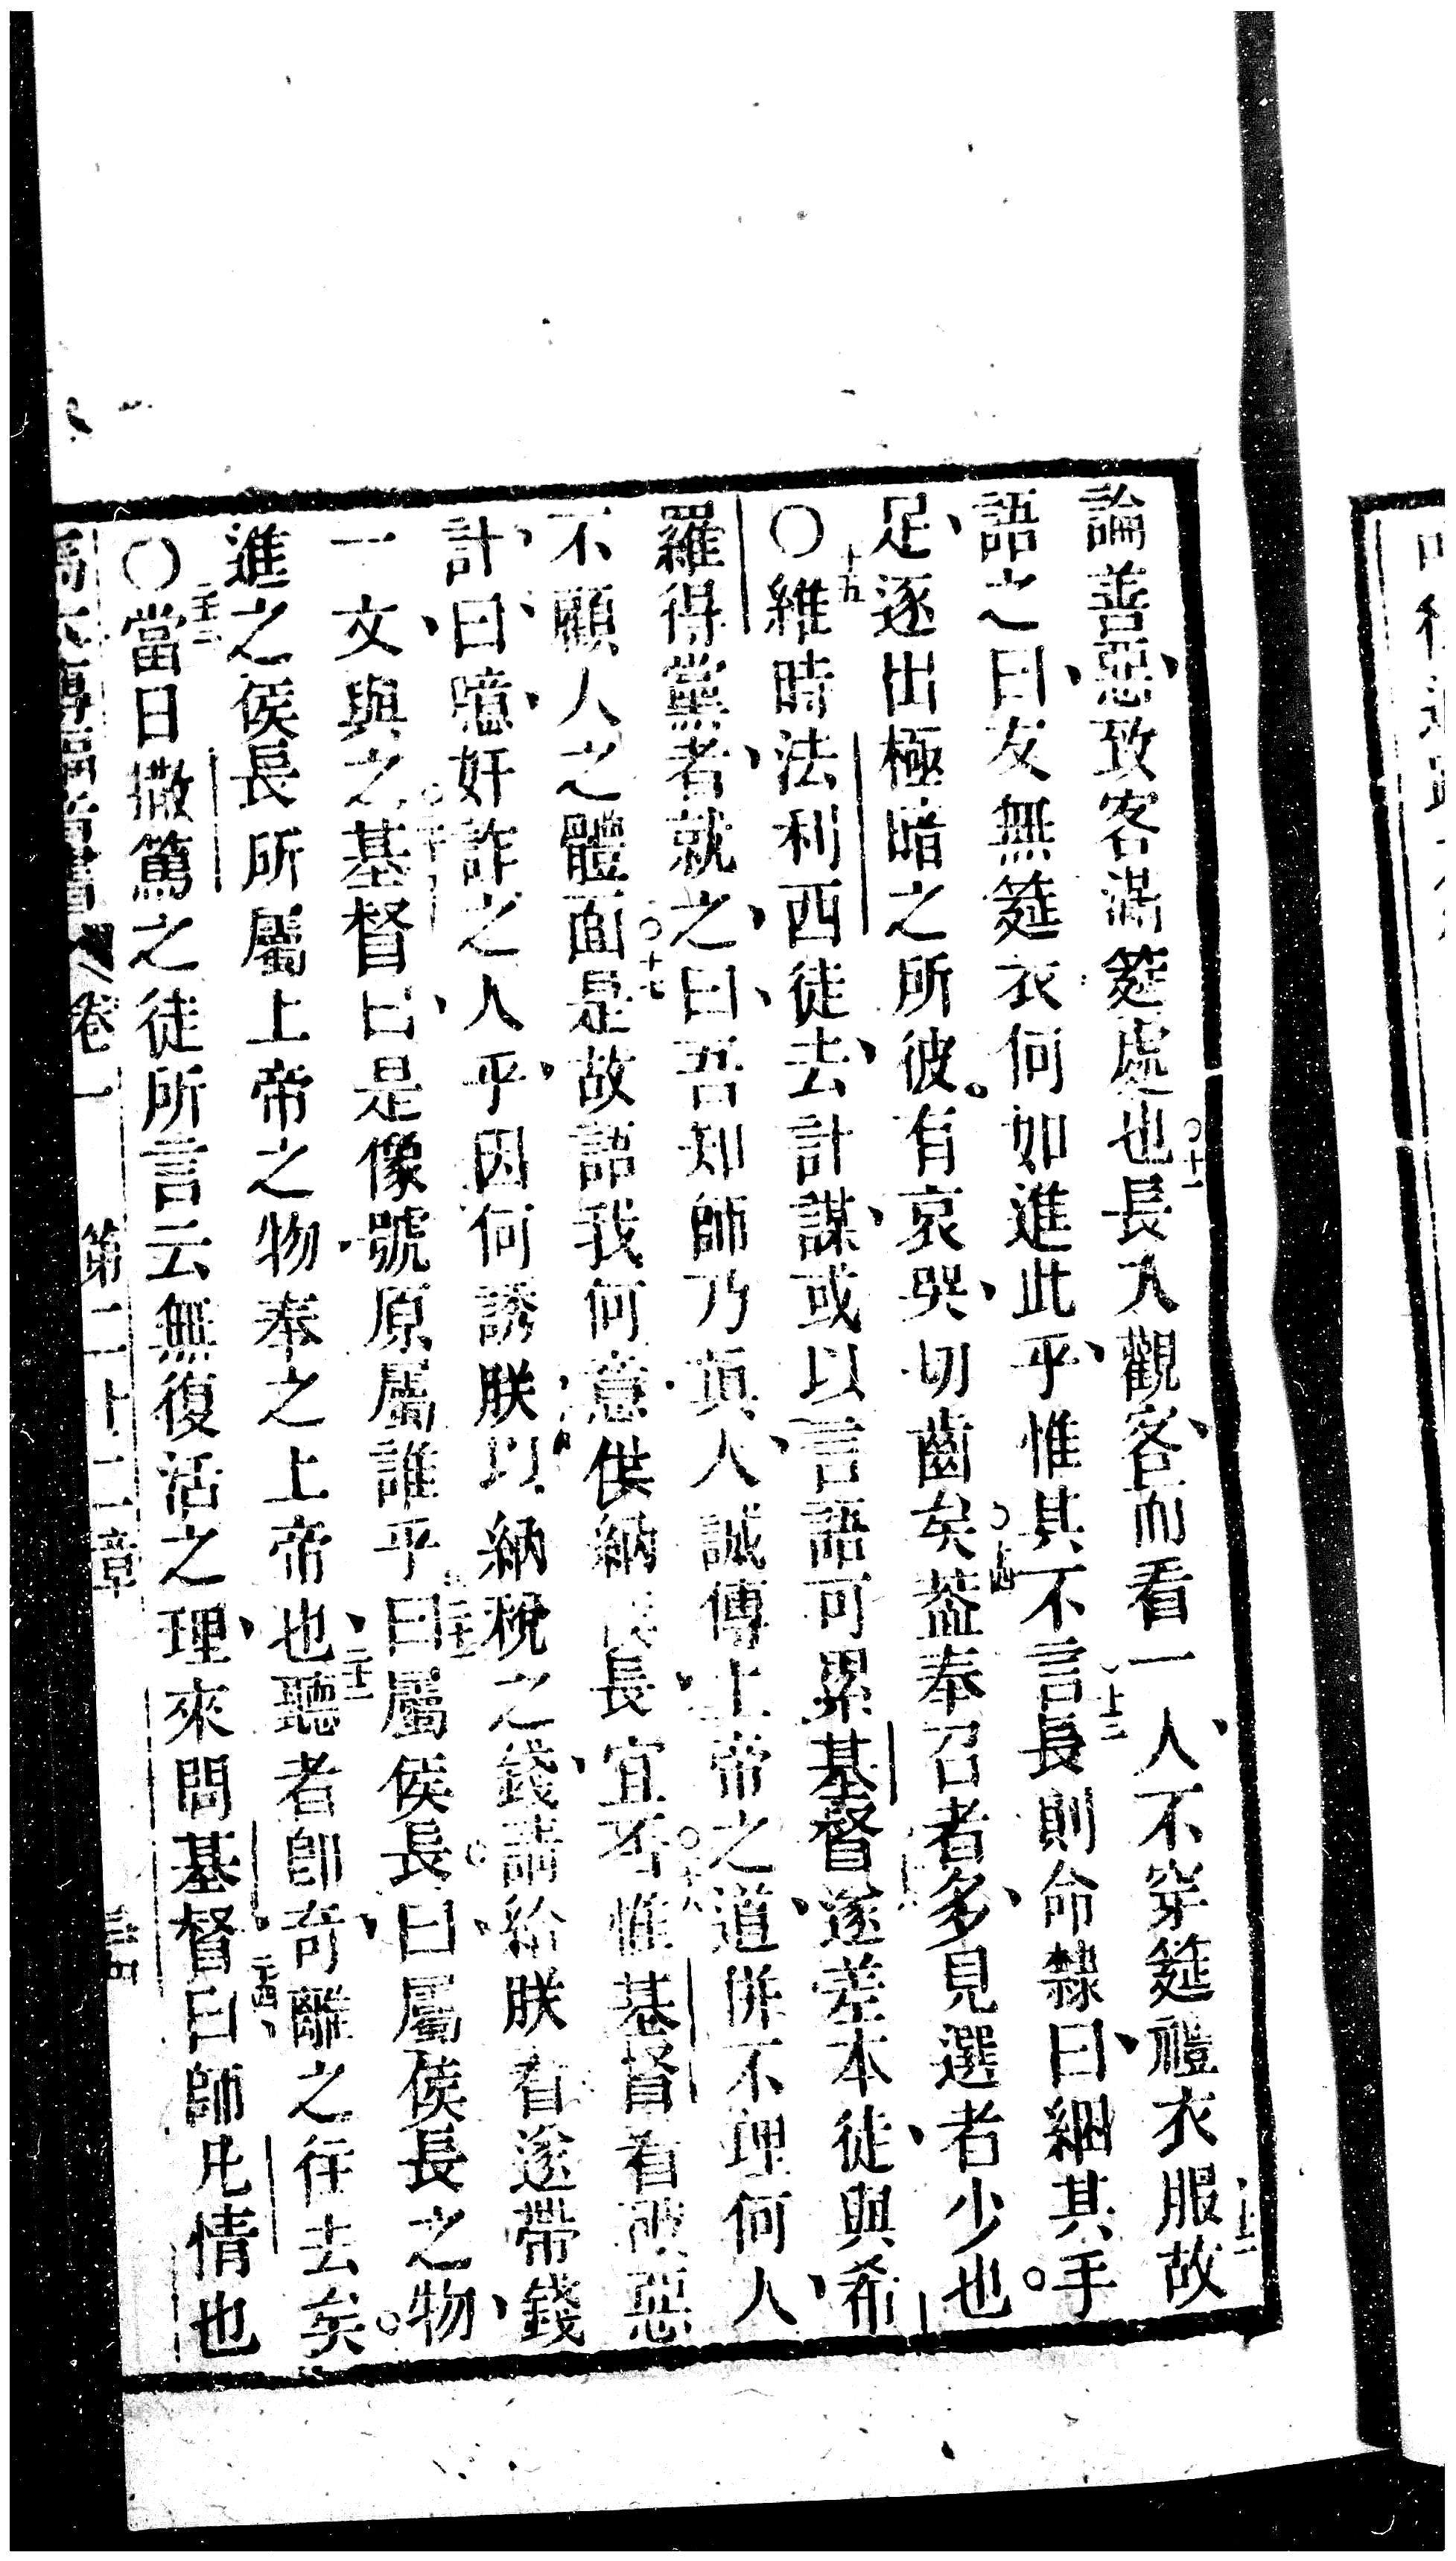 論善惡、致客滿筵處也○十一長入觀客、而看一人、不穿筵禮衣服、十二故
語之曰、友無筵衣何如進此乎、惟其不言十三長則命隸曰、綑其手
足、逐出極暗之所彼。有哀哭、切齒矣○十四葢奉召者多、見選者少也。
○十五維時法利西徒去、計謀、或以言語可累基督、遂差本徒、與希
羅得黨者、就之、曰、吾知師乃真人、誠傳上帝之道、併不理何人、
不顧人之體面○十七是故語我何意、供納長宜否○十八惟基督看破惡
計、曰、噫、奸詐之人乎、因何誘朕以納稅之錢、請給朕看、遂帶錢
一文、與之○二十基督曰、是像號、原屬誰乎二十一曰屬侯長。曰、屬侯長之物、
進之侯長所屬上帝之物、奉之上帝也、二十二聽者卽奇、離之往去矣。
○二十三當日撒篤之徒所言云無復活之理、來問基督二十四曰、師凡情也
卷一 第二十二章